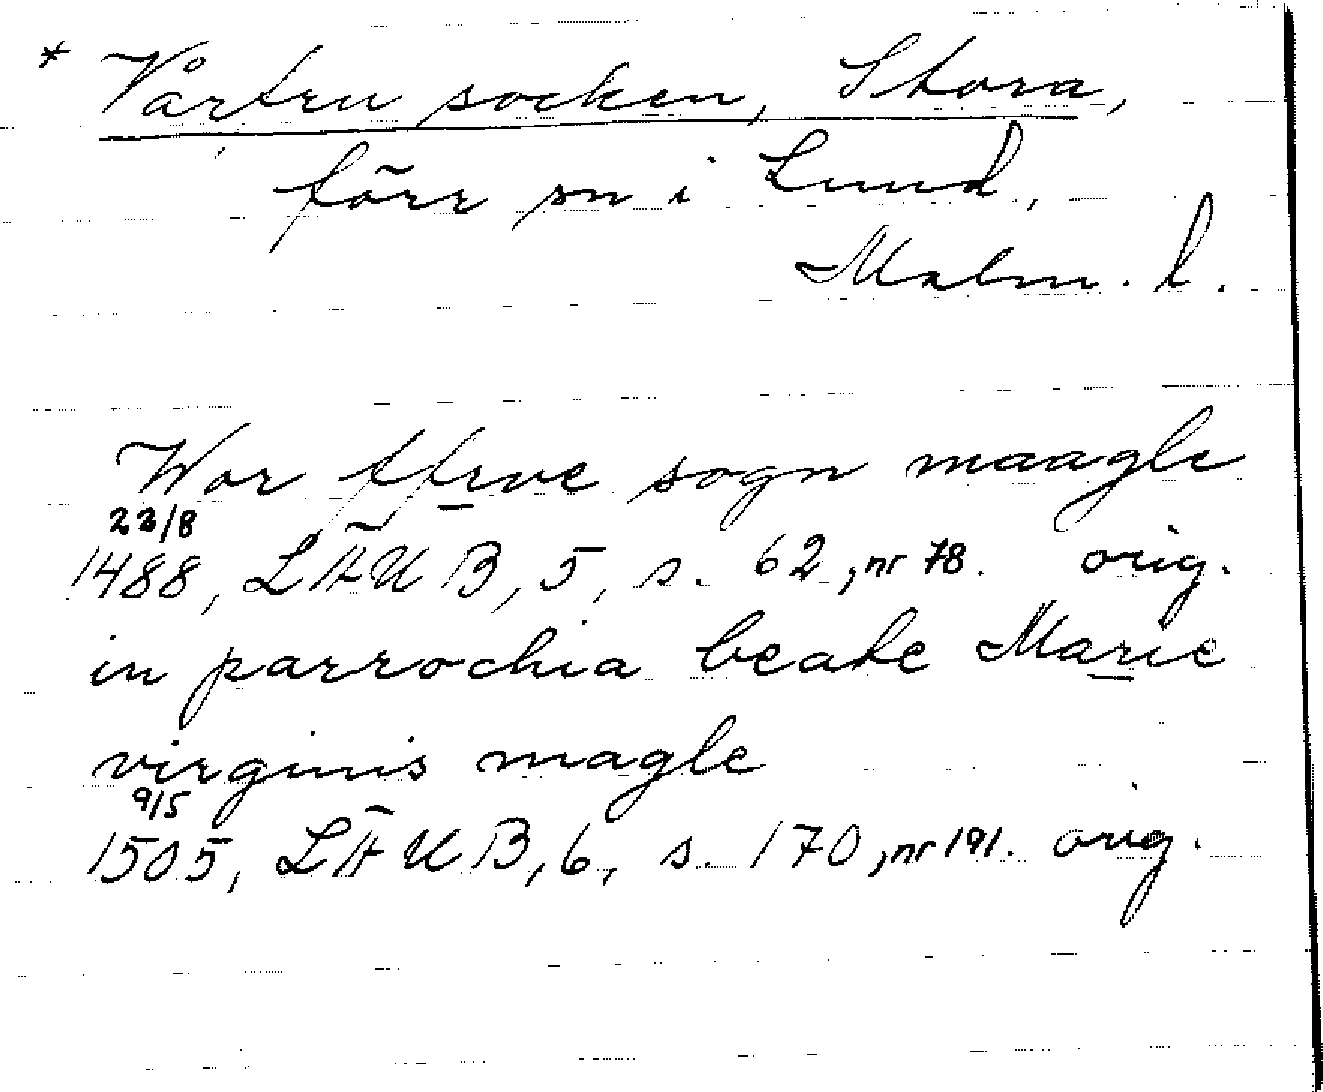 * Vårfru socken, Stora,
förr sn i Lund,
Malm. l.
Wor ffrve sogn maagle
23/8
1488, LÄUB, 5, s. 62, nr 78. orig.
in parrochia beate Marie
virginis magle
9/5
1505, LÄUB, 6, s. 170, nr 191. orig.